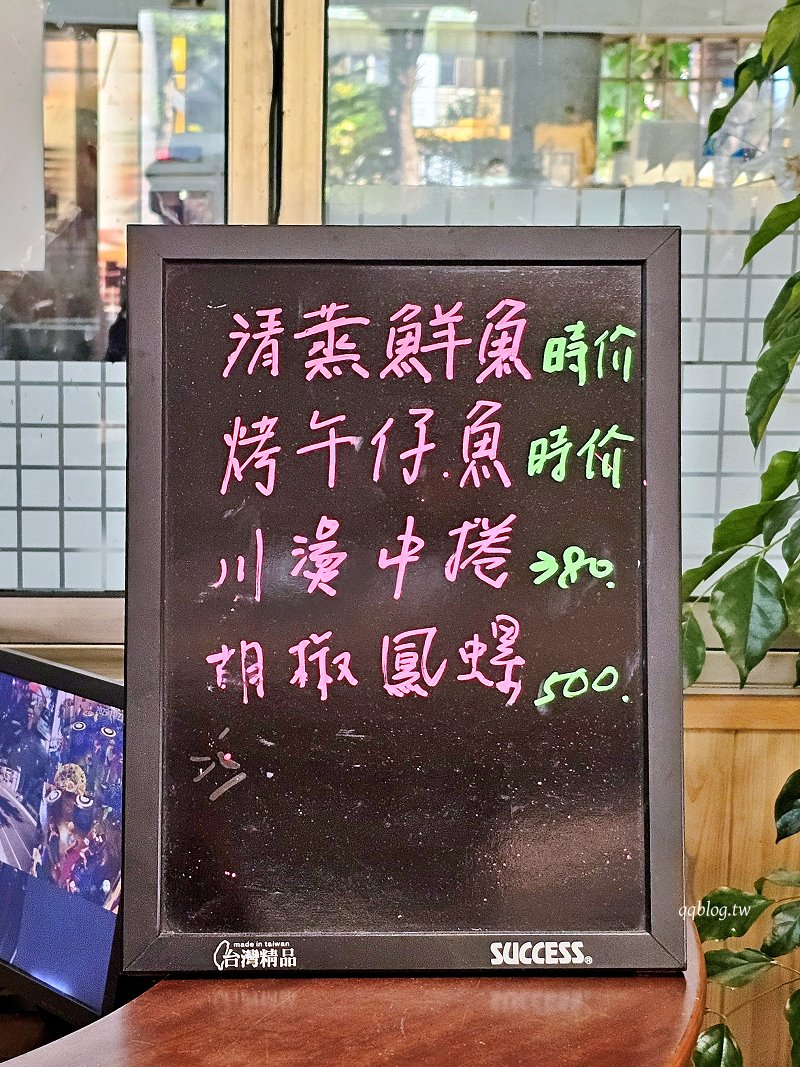 清蒸鮮魚 時价
烤午仔魚 時价
川燙中捲 380.
胡椒鳳螺 500.
made in taiwan
台灣精品
SUCCESS®
qqblog.tw